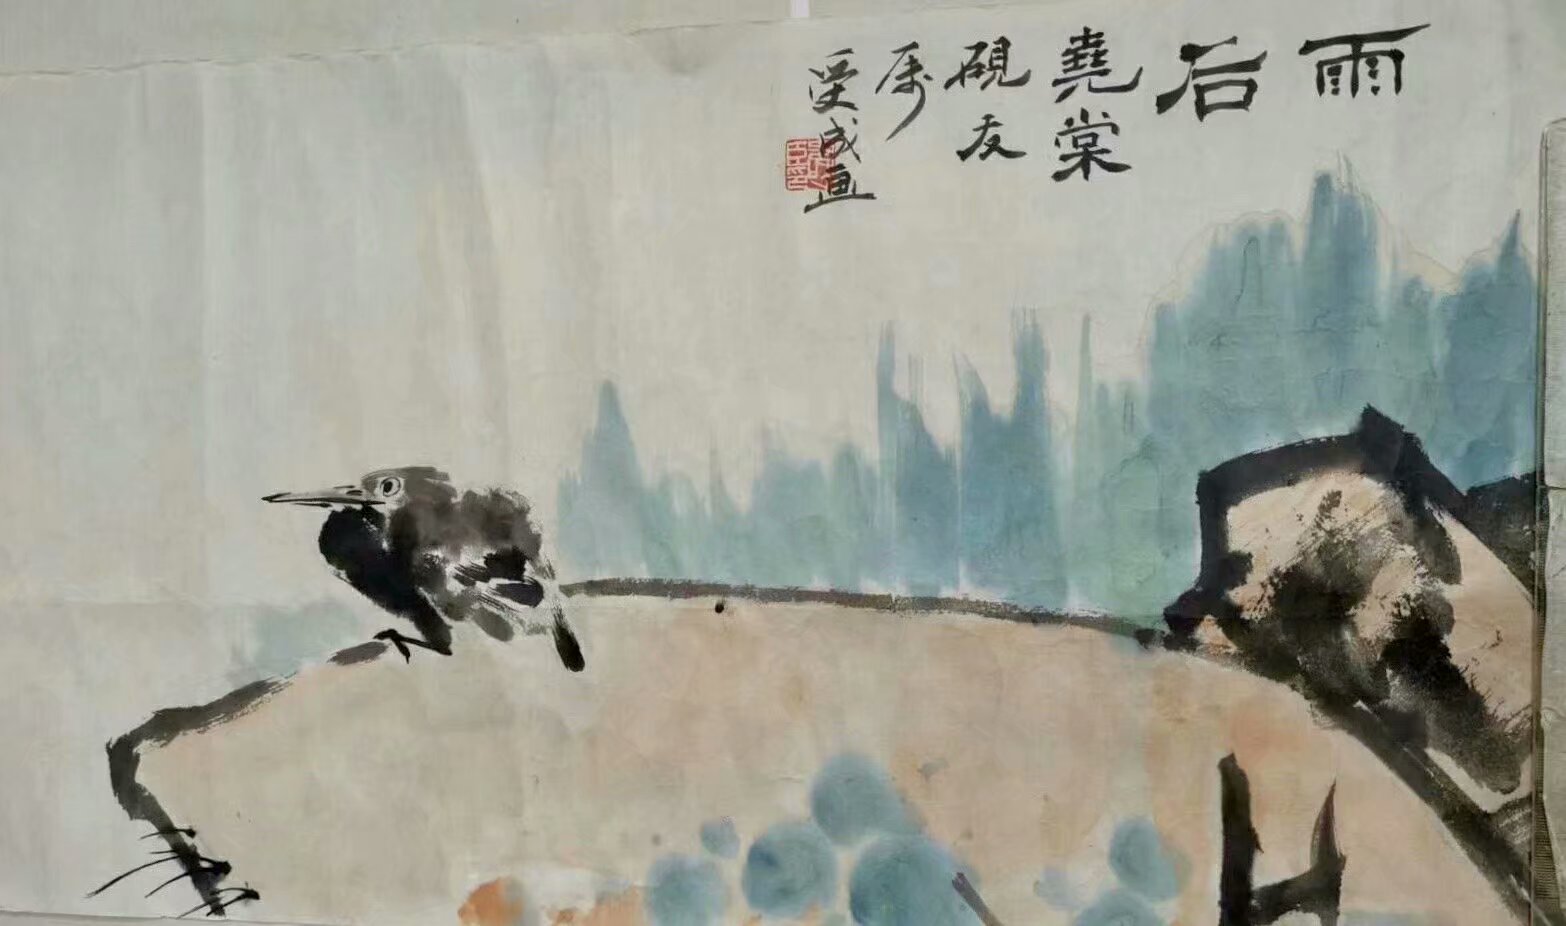 雨后
堯棠
硯友
属
受成画